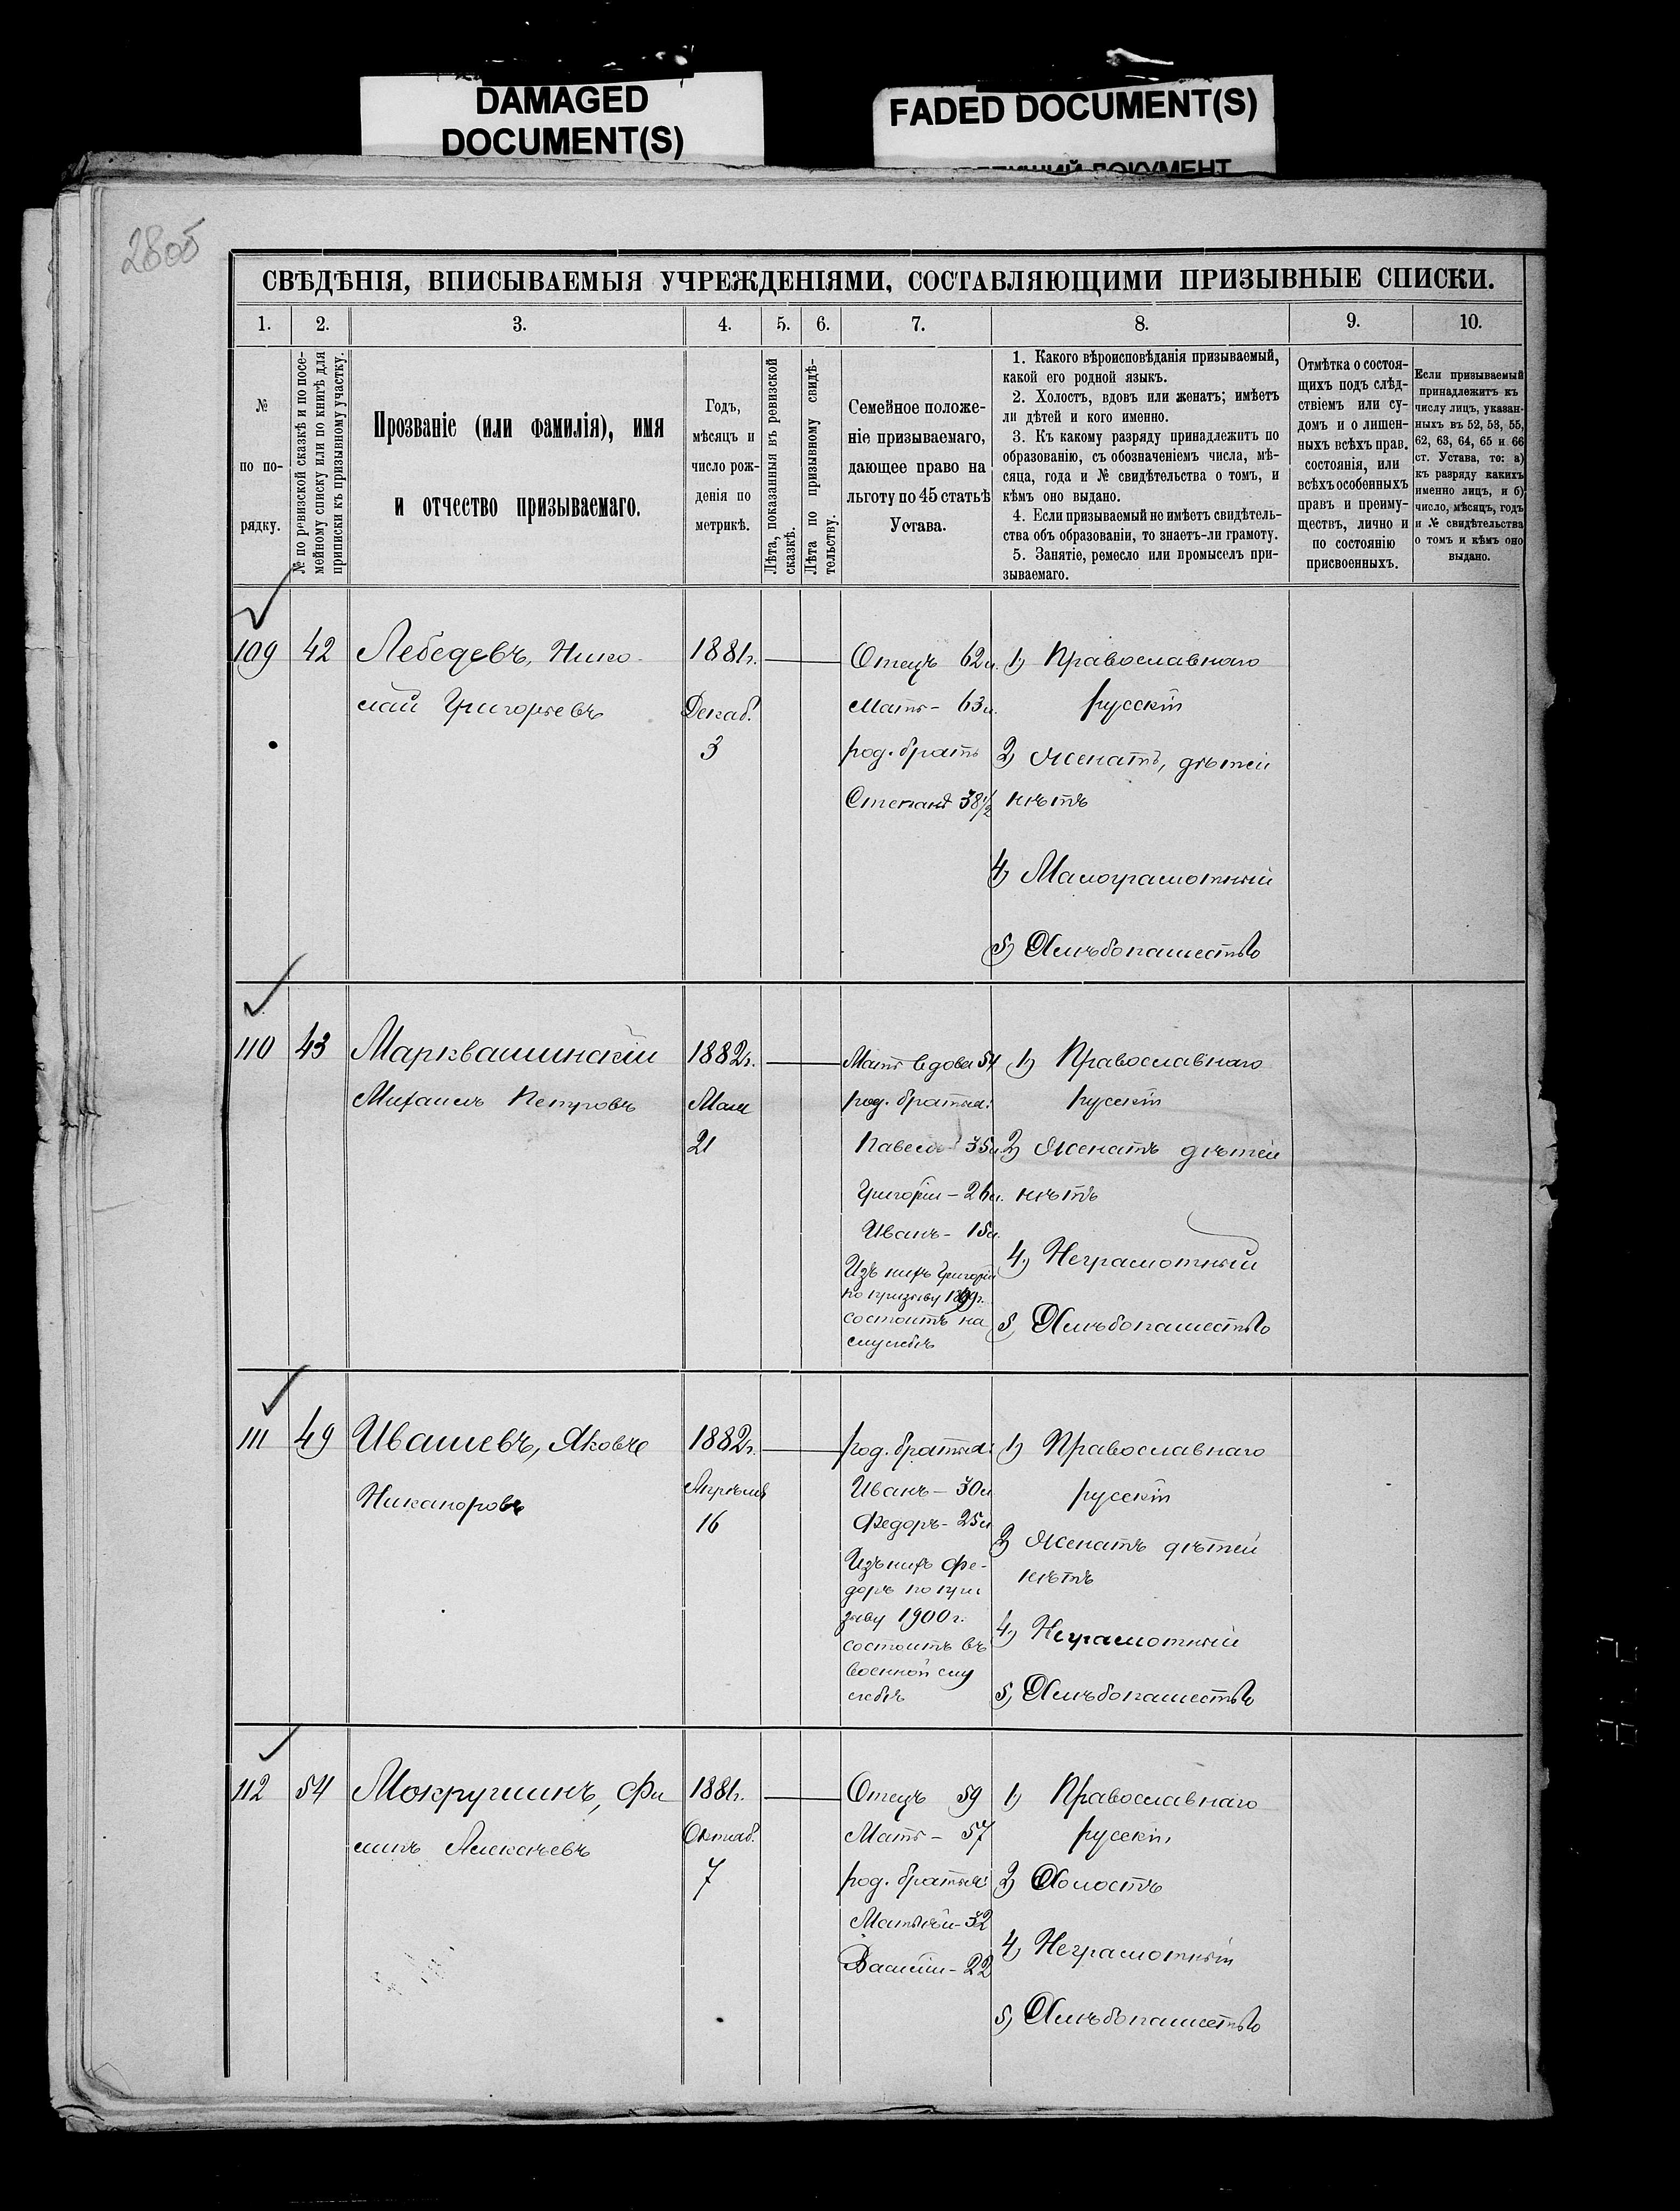 DAMAGED
DOCUMENT(S)
FADED DOCUMENT(S)
280об
СВѢДѢНІЯ, ВПИСЫВАЕМЫЯ УЧРЕЖДЕНІЯМИ, СОСТАВЛЯЮЩИМИ ПРИЗЫВНЫЕ СПИСКИ.
1. 2. 3. 4. 5. 6. 7. 8. 9. 10.
№
по по-
рядку.
№ по ревизской сказкѣ и по посе-
мейному списку или по книгѣ для
приписки къ призывному участку.
Прозваніе (или фамилія), имя
и отчество призываемаго.
Годъ,
мѣсяцъ и
число рож-
денія по
метрикѣ.
Лѣта, показанныя въ ревизской
сказкѣ.
Лѣта по призывному свидѣ-
тельству.
Семейное положе-
ніе призываемаго,
дающее право на
льготу по 45 статьѣ
Устава.
1. Какого вѣроисповѣданія призываемый,
какой его родной языкъ.
2. Холостъ, вдовъ или женатъ; имѣетъ
ли дѣтей и кого именно.
3. Къ какому разряду принадлежитъ по
образованію, съ обозначеніемъ числа, мѣ-
сяца, года и № свидѣтельства о томъ, и
кѣмъ оно выдано.
4. Если призываемый не имѣетъ свидѣтель-
ства объ образованіи, то знаетъ-ли грамоту.
5. Занятіе, ремесло или промыселъ при-
зываемаго.
Отмѣтка о состоя-
щихъ подъ слѣд-
ствіемъ или су-
домъ и о лишен-
ныхъ всѣхъ прав.
состоянія, или
всѣхъ особенныхъ
правъ и преиму-
ществъ, лично и
по состоянію
присвоенныхъ.
Если призываемый
принадлежитъ къ
числу лицъ, указан-
ныхъ въ 52, 53, 55,
62, 63, 64, 65 и 66
ст. Устава, то: а)
къ разряду какихъ
именно лицъ, и б)
число, мѣсяцъ, годъ
и № свидѣтельства
о томъ и кѣмъ оно
выдано.
109 42 Лебедевъ, Нико-
лай Григорьевъ
1881г.
Декаб.
3
Отецъ 62л.
Мать - 63л.
род. братъ
Степанъ 38½
1) Православнаго
русскій
2) Женатъ, дѣтей
нѣтъ
4) Малограмотный
5) Хлѣбопашество
110 43 Марквашинскій
Михаилъ Петровъ
1882г.
Мая
21
Мать вдова 54
род. братья:
Павелъ 35л.
Григорій - 26л.
Иванъ - 15л.
Изъ нихъ Григорій
по призыву 1899г.
состоитъ на
службѣ
1) Православнаго
русскій
2) Женатъ дѣтей
нѣтъ
4) Неграмотный
5) Хлѣбопашество
111 49 Ивашевъ, Яковъ
Никаноровъ
1882г.
Апрѣля
16
род. братья:
Иванъ - 30л
Федоръ - 25л
Изъ нихъ Фе-
доръ по при
зыву 1900г.
состоитъ въ
военной слу
жбѣ
1) Православнаго
русскій
2) Женатъ дѣтей
нѣтъ
4) Неграмотный
5) Хлѣбопашество
112 54 Мокрушинъ, Фи
липъ Алексѣевъ
1881г.
Октяб.
7
Отецъ 59
Мать - 57
род. братья:
Матвѣй - 32
Василій - 22
1) Православнаго
русскій
2) Холостъ
4) Неграмотный
5) Хлѣбопашество